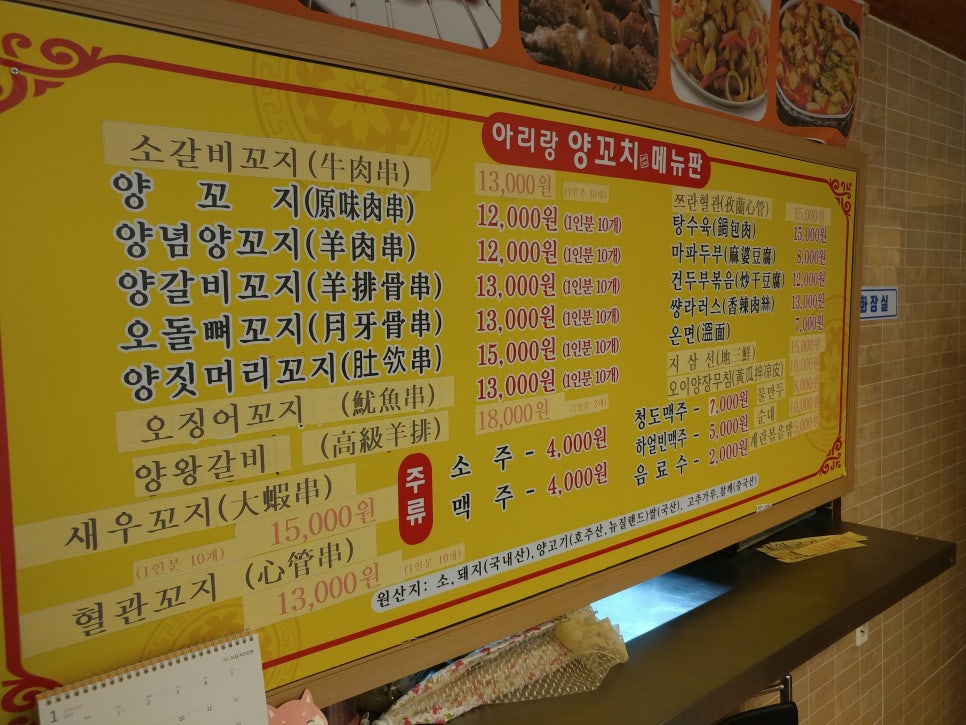 아리랑 양꼬치 메뉴판
소갈비꼬지(牛肉串) 13,000원 (1인분 10개)
양 꼬 지(原味肉串) 12,000원 (1인분 10개)
양념양꼬지(羊肉串) 12,000원 (1인분 10개)
양갈비꼬지(羊排骨串) 13,000원 (1인분 10개)
오돌뼈꼬지(月牙骨串) 13,000원 (1인분 10개)
양짓머리꼬지(肚饮串) 15,000원 (1인분 10개)
오징어꼬지 (魷魚串) 13,000원 (1인분 10개)
양왕갈비 (高級羊排) 18,000원
새우꼬지(大蝦串) 15,000원
(1인분 10개)
혈관꼬지 (心管串) 13,000원 (1인분 10개)
쯔란혈관(孜蘭心管) 15,000원
탕수육(鍋包肉) 15,000원
마파두부(麻婆豆腐) 8,000원
건두부볶음(炒干豆腐) 12,000원
썅라러스(香辣肉絲) 13,000원
온면(溫面) 7,000원
지삼선(地三鮮) 15,000원
오이양장무침(黃瓜拌涼皮) 10,000원
물만두 8,000원
순대 10,000원
계란볶음밥 5,000원
주류
소 주 - 4,000원
맥 주 - 4,000원
청도맥주 - 7,000원
하얼빈맥주 - 5,000원
음료수 - 2,000원
원산지: 소,돼지(국내산), 양고기(호주산, 뉴질랜드)쌀(국산), 고추가루, 참깨(중국산)
화장실
1